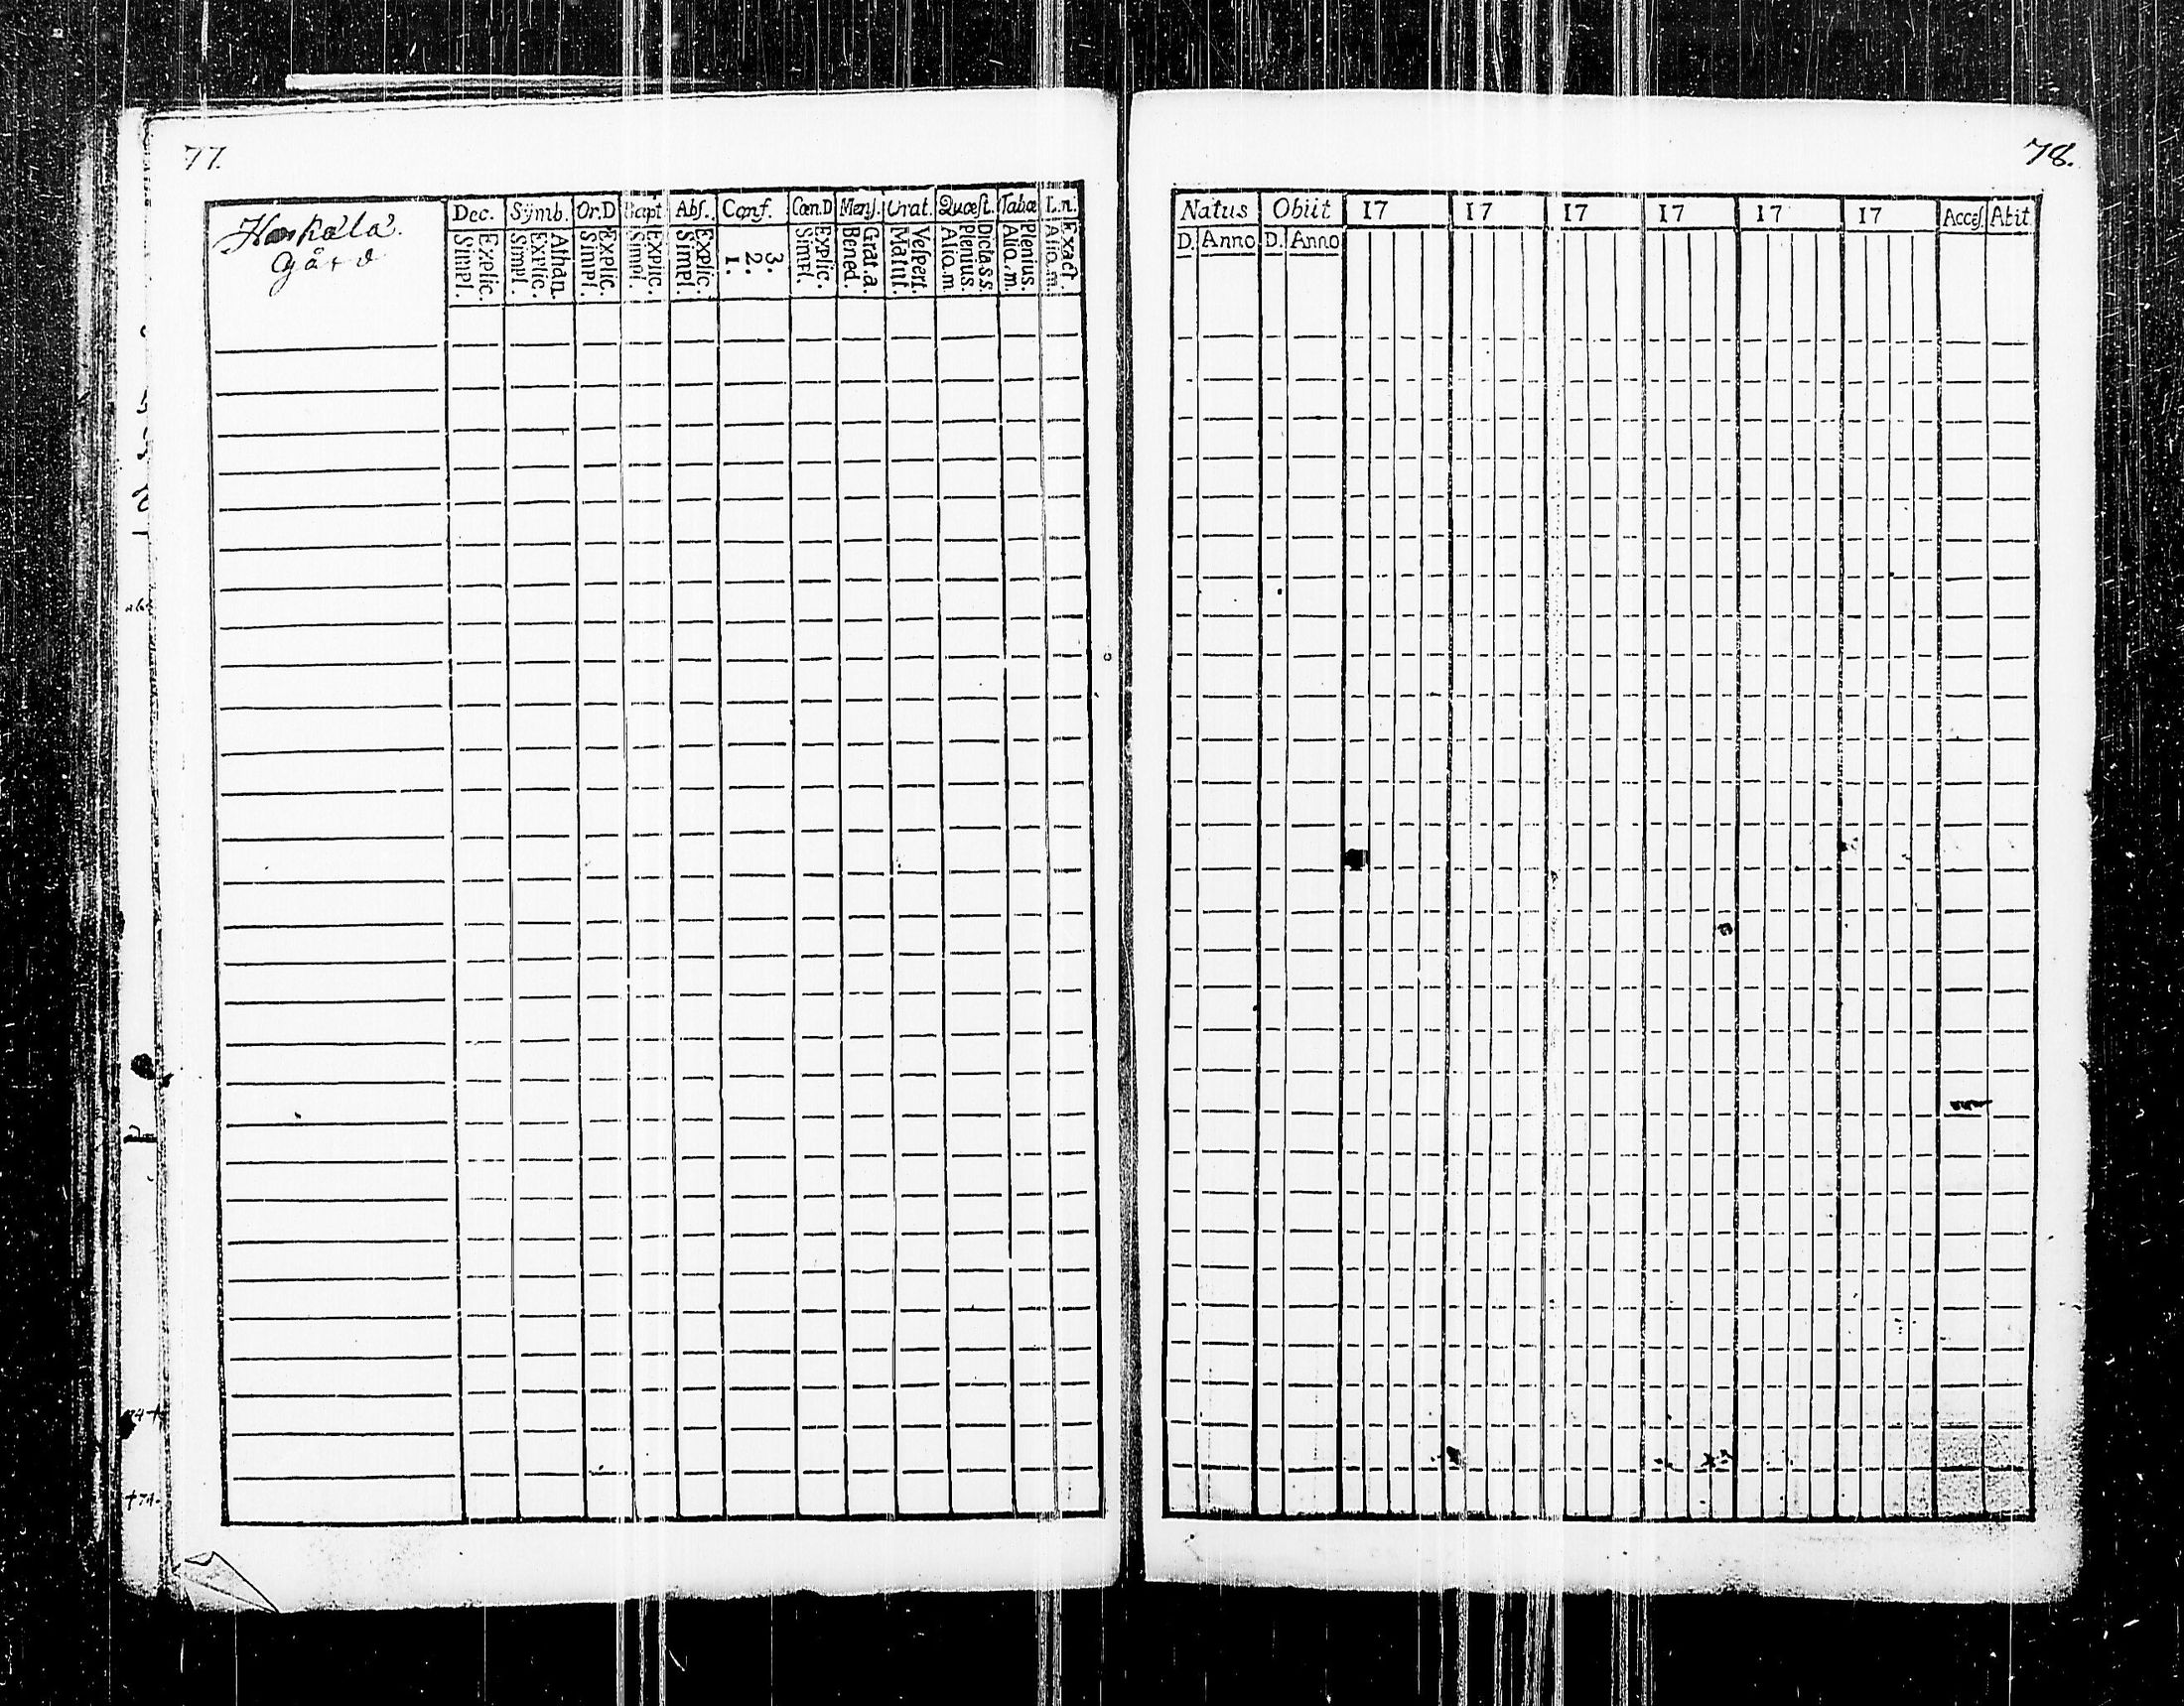 77.
78.
gård
Dec. Sÿmb. Or.D Bapt. Abs. Conf. Cœn.D Mens. Orat. Quæst. Tabæ L.n.
Simpl. Explic. Simpl. Explic. Athan. Simpl. Explic. Simpl. Explic. Simpl. Explic. 1. 2. 3. Simpl. Explic. Bened. Grat.a. Matut. Vespert. Alio.m. Plenius. Dicta.s.s. Alio.m. Plenius. Alio.m. Exact.
Natus Obiit 17 17 17 17 17 17 Acces. Abit
D. Anno D. Anno